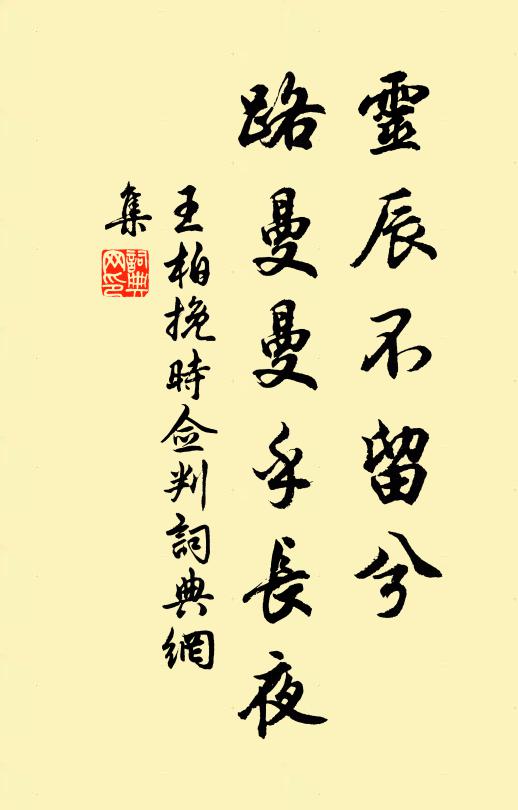 靈辰不留兮
路曼曼乎長夜
王柏挽時僉判詞典網
集
詞典
网印